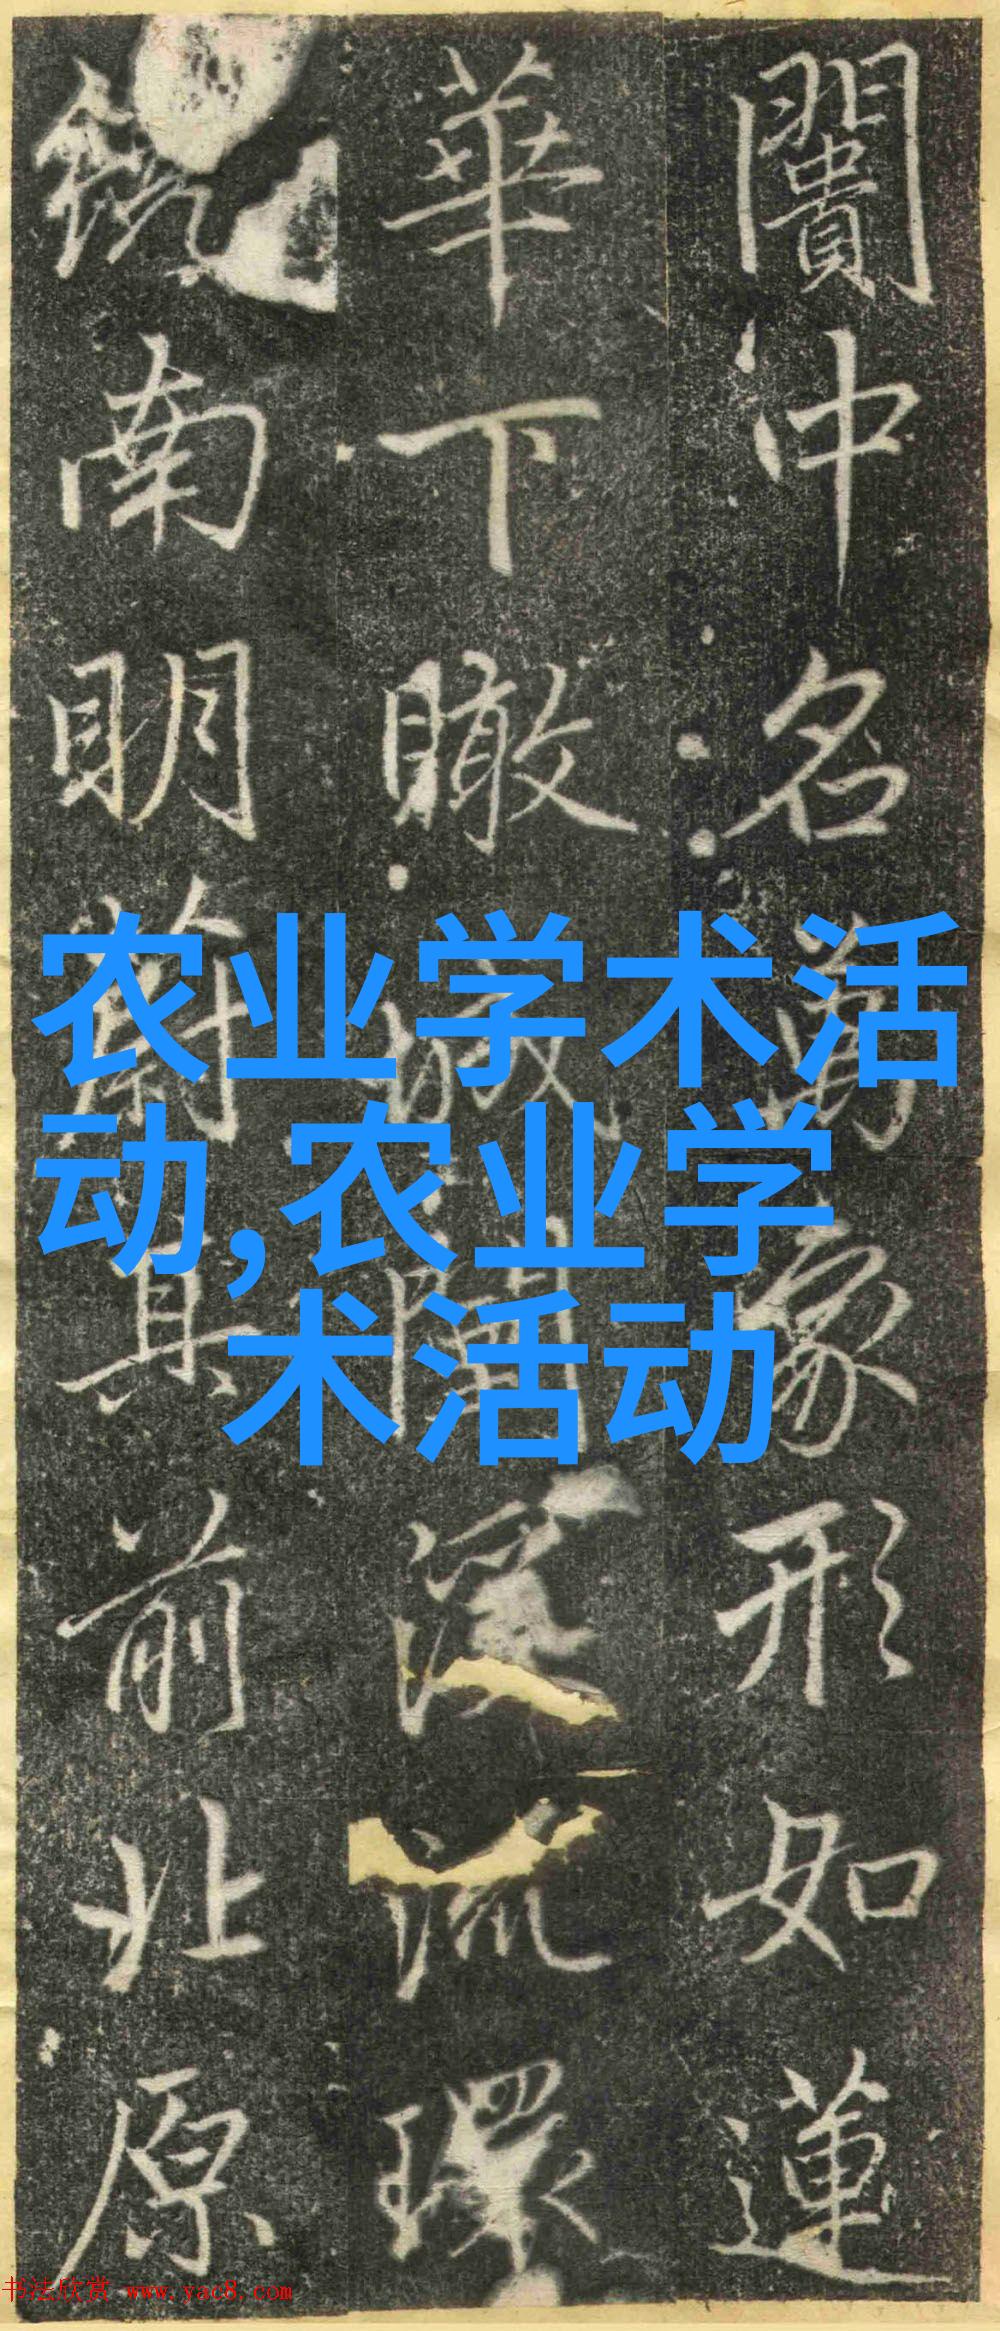 闠冲名象形如蓮
華下瞰深流環
南明其前北原
农业学术活
动,农业学
术活动
书法欣赏 www.yac8.com